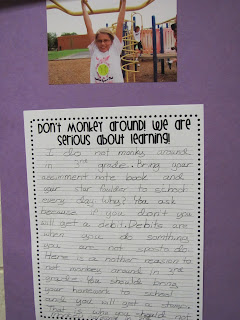 Don't Monkey around! We are
serious about learning!
I do not monky around
in 3rd grade. Bring your
assinment note book and
your star foulder to school
every day. Why? You ask
because if you don't you
will get a debit. Debits are
when you do somthing
you are not sposto do.
Here is a nother reason to
not monkey around in 3rd
grade. You should bring
your homework to school
and you will get a
That is why you should not